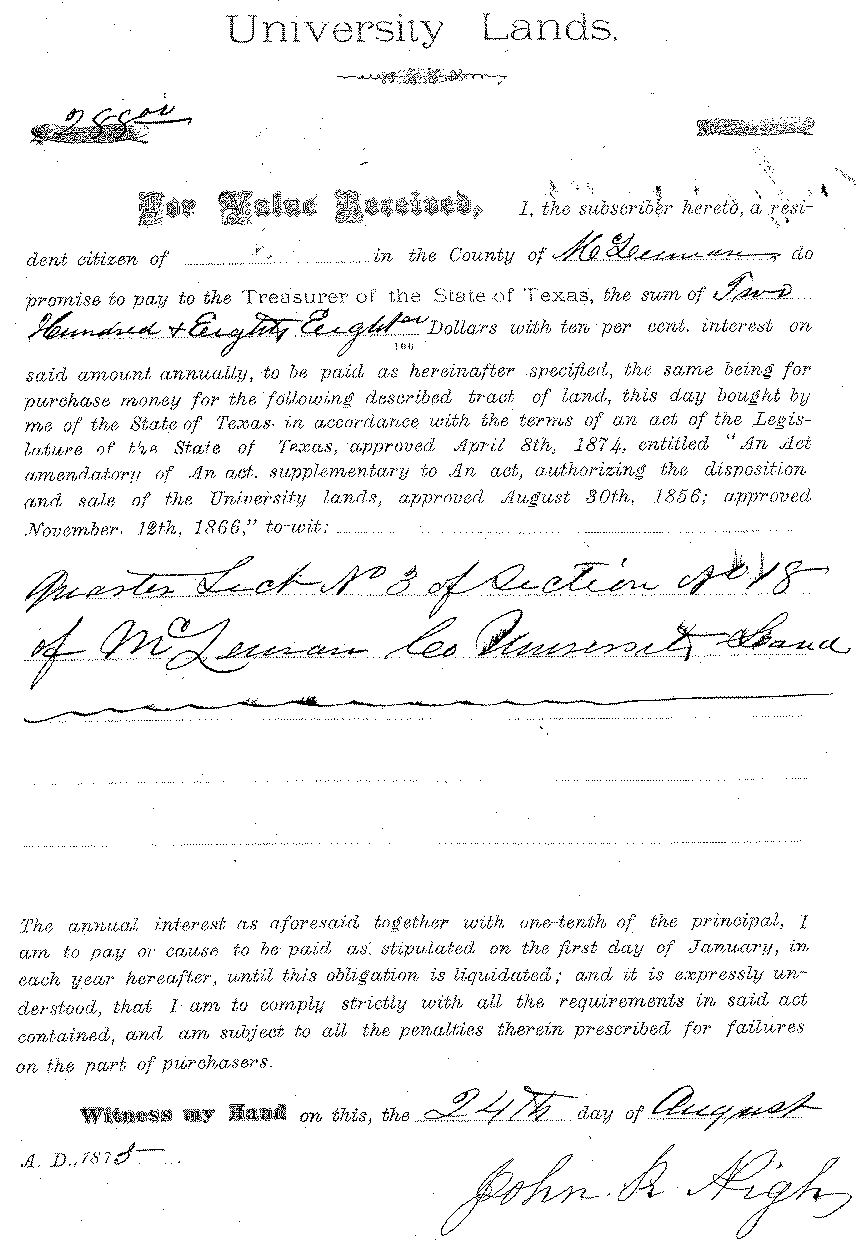 University Lands.
288 00
For Value Received, I, the subscriber hereto, a resi-
dent citizen of in the County of McLennan, do
promise to pay to the Treasurer of the State of Texas, the sum of Two
Hundred & Eighty Eight 00 Dollars with ten per cent. interest on
100
said amount annually, to be paid as hereinafter specified, the same being for
purchase money for the following described tract of land, this day bought by
me of the State of Texas in accordance with the terms of an act of the Legis-
lature of the State of Texas, approved April 8th, 1874, entitled "An Act
amendatory of An act, supplementary to An act, authorizing the disposition
and sale of the University lands, approved August 30th, 1856; approved
November, 12th, 1866," to-wit:
Quarter Sect No 3 of Section No 18
of McLennan Co University Land
The annual interest as aforesaid together with one-tenth of the principal, I
am to pay or cause to be paid as stipulated on the first day of January, in
each year hereafter, until this obligation is liquidated; and it is expressly un-
derstood, that I am to comply strictly with all the requirements in said act
contained, and am subject to all the penalties therein prescribed for failures
on the part of purchasers.
Witness my Hand on this, the 24th day of August
A. D., 1875
John R. High